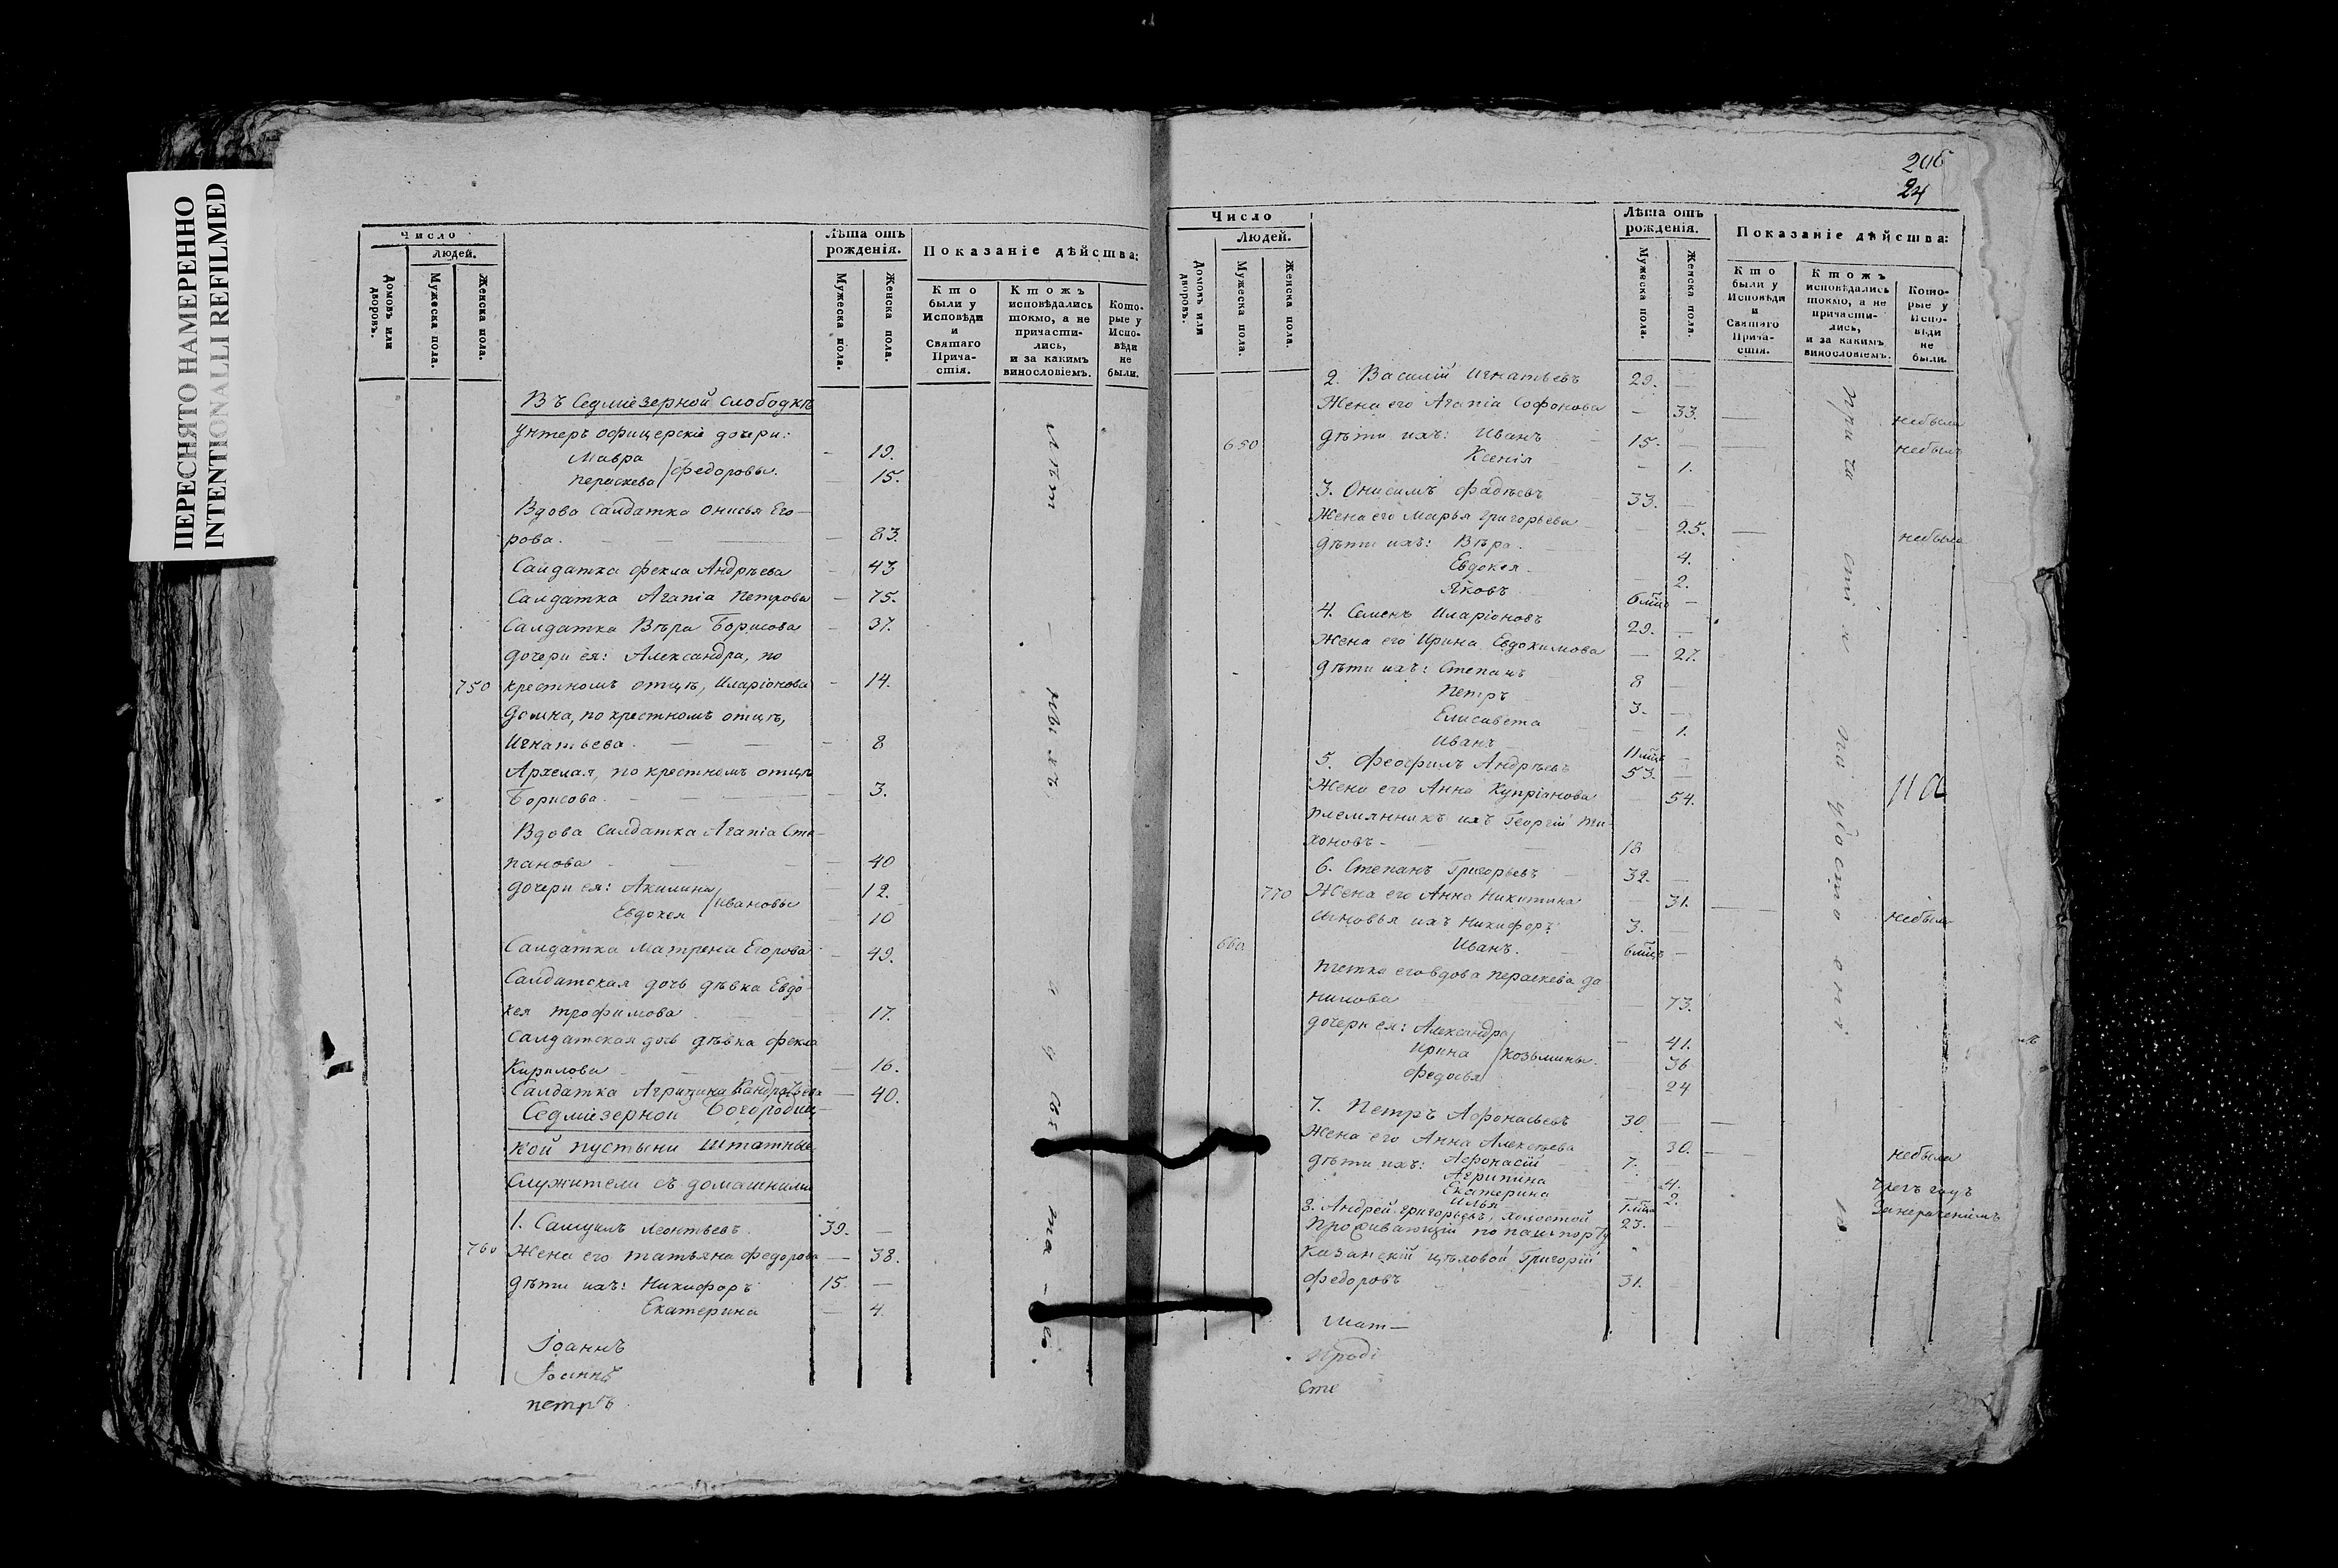 ПЕРЕСНЯТО НАМЕРЕННО
INTENTIONALLI REFILMED
Число
людей.
Домовъ или дворовъ.
Мужеска пола.
Женска пола.
Лѣта отъ рожденія.
Мужеска пола.
Женска пола.
Показаніе дѣйства:
Кто были у Исповѣди и Святаго Причастія.
Ктожъ исповѣдались токмо, а не причастились, и за какимъ винословіемъ.
Которые у Исповѣди не были.
Въ Седміезерной слободкѣ
Унтеръ офицерскіе дочери:
Мавра 19.
Пераскева Федоровы. 15.
Вдова Салдатка Онисья Его-
рова. 83.
Салдатка Фекла Андрѣева 43
Салдатка Агапіа Петрова 75.
Салдатка Вѣра Борисова 37.
дочери ея: Александра, по
750 крестномъ отцѣ, Иларіонова 14.
Домна, по крестномъ отцѣ,
Игнатьева. 8
по крестномъ отцѣ
Борисова. 3.
Вдова Салдатка Агапіа Сте-
панова 40
дочери ея: Акилина 12.
Евдокея Ивановы 10
Салдатка Матрена Егорова 49.
Салдатская дочь дѣвка Евдо-
кея Трофимова 17.
Салдатская дочь дѣвка Фекла
Кирилова 16.
Салдатка Агрипина Кандратьева 40.
Седміезерной Богородиц-
кой пустыни Штатные
Служители съ домашними
1. Самуилъ Леонтьевъ 39.
760 Жена его Татьяна Федорова 38.
дѣти ихъ: Никифоръ 15.
Екатерина 4.
Іоаннъ
Іоаннъ
Петръ
206
24
Число
Людей.
Домовъ или дворовъ.
Мужеска пола.
Женска пола.
Лѣта отъ рожденія.
Мужеска пола.
Женска пола.
Показаніе дѣйства:
Кто были у Исповѣди и Святаго Причастія.
Ктожъ исповѣдались токмо, а не причастились, и за какимъ винословіемъ.
Которые у Исповѣди не были.
2. Василій Игнатьевъ 29.
Жена его Агапіа Софонова 33. небыла
650 дѣти ихъ: Иванъ 15. небылъ
Ксенія 1.
3. Онисимъ Фадѣевъ 33.
Жена его Марья Григорьева 25. небыла
дѣти ихъ: Вѣра 4.
Евдокея 2.
Яковъ 6 мцъ
4. Семенъ Иларіоновъ 29.
Жена его Ирина Евдокимова 27.
дѣти ихъ: Степанъ 8
Петръ 3.
Елисавета 1.
Иванъ 11 мцъ
5. Феофилъ Андрѣевъ 53.
Жена его Анна Купріанова 54.
племянникъ ихъ Георгій Ти-
хоновъ 18
6. Степанъ Григорьевъ 32.
770 Жена его Анна Никитина 31. небыла
сыновья ихъ Никифоръ 3.
660 Иванъ. 6 мцъ
тетка его вдова Пераскева Да-
нилова 73.
дочери ея: Александра 41.
Ирина Козьмины. 36
Федосья 24
7. Петръ Афонасьевъ 30
Жена его Анна Алексѣева 30. небыла
дѣти ихъ: Афонасій 7.
Агрипина 4.
Екатерина 2.
Илья
8. Андрей Григорьевъ, холостой 23.
Проживающій по пашпорту
Казанскій цѣховой Григорій
Федоровъ 31.
занераченіемъ
Шат-
Проді
Сте